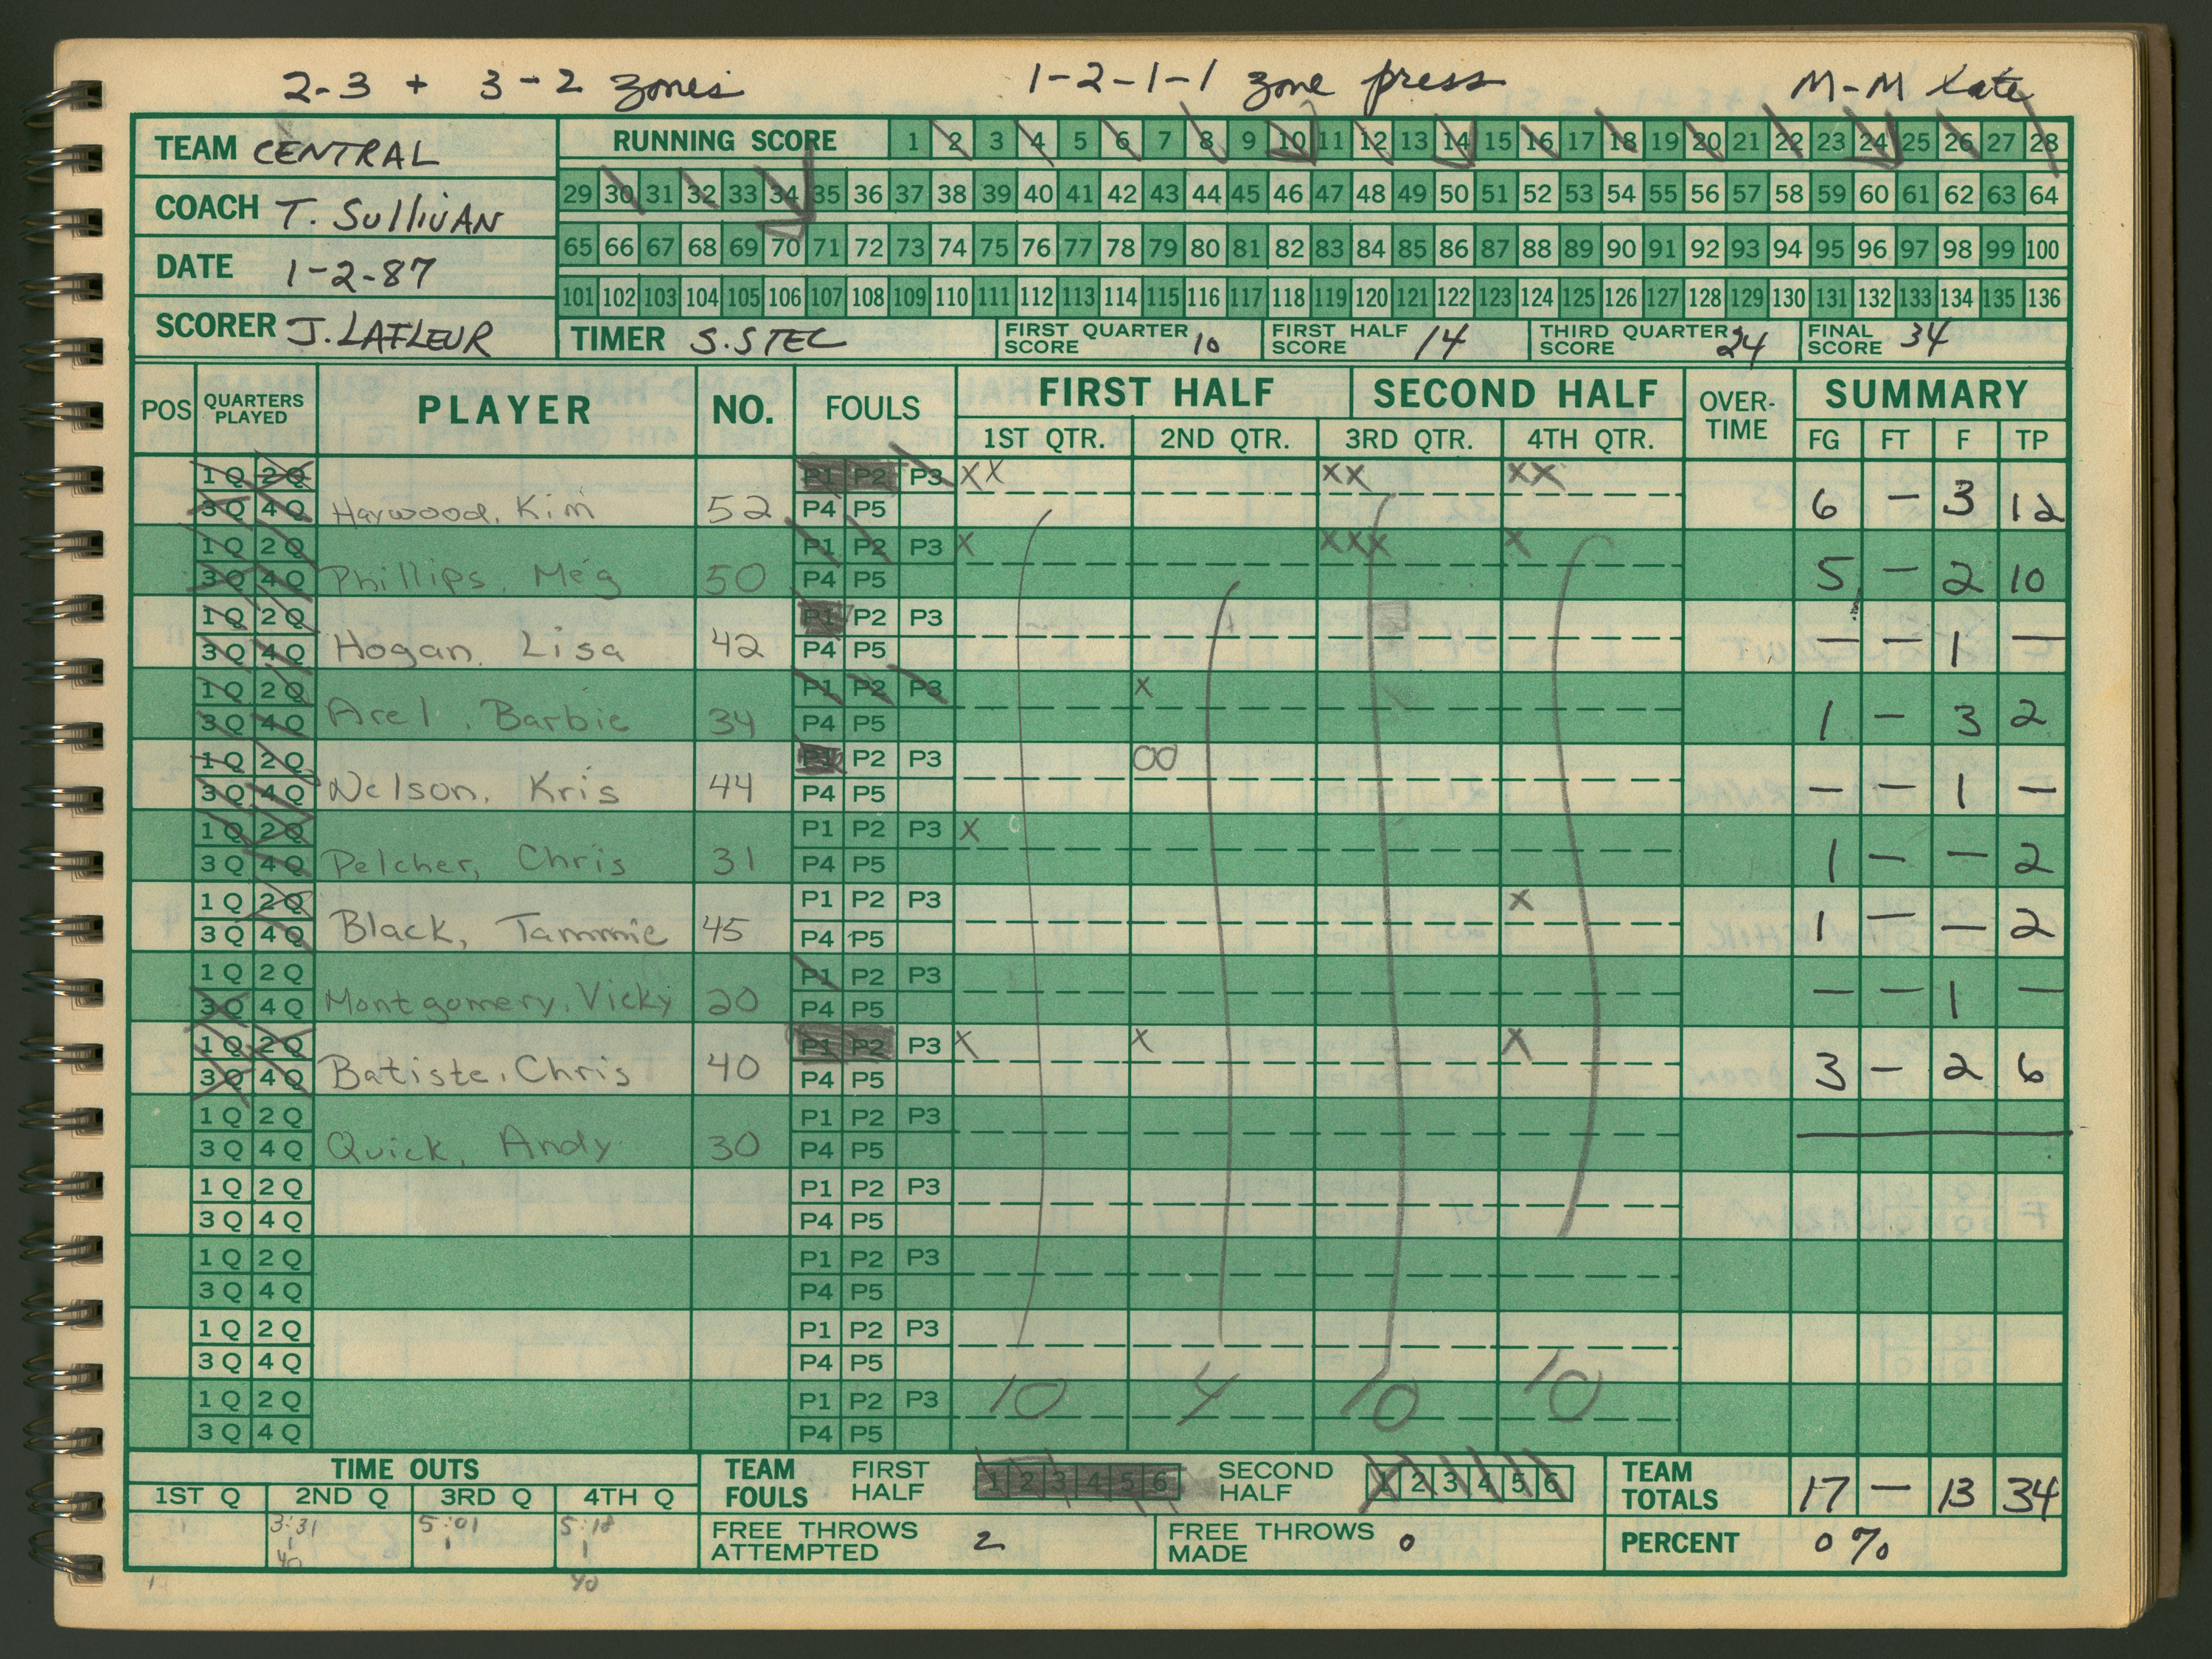 2-3 + 3-2 zones 1-2-1-1 zone press M-M late
TEAM CENTRAL
RUNNING SCORE 1 2 3 4 5 6 7 8 9 10 11 12 13 14 15 16 17 18 19 20 21 22 23 24 25 26 27 28
29 30 31 32 33 34 35 36 37 38 39 40 41 42 43 44 45 46 47 48 49 50 51 52 53 54 55 56 57 58 59 60 61 62 63 64
COACH T. SULLIVAN
65 66 67 68 69 70 71 72 73 74 75 76 77 78 79 80 81 82 83 84 85 86 87 88 89 90 91 92 93 94 95 96 97 98 99 100
DATE 1-2-87
101 102 103 104 105 106 107 108 109 110 111 112 113 114 115 116 117 118 119 120 121 122 123 124 125 126 127 128 129 130 131 132 133 134 135 136
SCORER J. LAFLEUR TIMER S. STEC FIRST QUARTER SCORE 10 FIRST HALF SCORE 14 THIRD QUARTER SCORE 24 FINAL SCORE 34
POS QUARTERS PLAYED PLAYER NO. FOULS FIRST HALF SECOND HALF OVER-TIME SUMMARY
1ST QTR. 2ND QTR. 3RD QTR. 4TH QTR. FG FT F TP
1Q 2Q P1 P2 P3 XX XX XX
3Q 4Q Haywood, Kim 52 P4 P5 6 - 3 12
1Q 2Q P1 P2 P3 X XXX X
3Q 4Q Phillips, Meg 50 P4 P5 5 - 2 10
1Q 2Q P1 P2 P3
3Q 4Q Hogan, Lisa 42 P4 P5 - - 1 -
1Q 2Q P1 P2 P3 X
3Q 4Q Arel, Barbie 34 P4 P5 1 - 3 2
1Q 2Q P1 P2 P3 OO
3Q 4Q Nelson, Kris 44 P4 P5 - - 1 -
1Q 2Q P1 P2 P3 X
3Q 4Q Pelcher, Chris 31 P4 P5 1 - - 2
1Q 2Q P1 P2 P3 X
3Q 4Q Black, Tammie 45 P4 P5 1 - - 2
1Q 2Q P1 P2 P3
3Q 4Q Montgomery, Vicky 20 P4 P5 - - 1 -
1Q 2Q P1 P2 P3 X X X
3Q 4Q Batiste, Chris 40 P4 P5 3 - 2 6
1Q 2Q P1 P2 P3
3Q 4Q Quick, Andy 30 P4 P5
1Q 2Q P1 P2 P3
3Q 4Q P4 P5
1Q 2Q P1 P2 P3
3Q 4Q P4 P5
1Q 2Q P1 P2 P3
3Q 4Q P4 P5
1Q 2Q P1 P2 P3 10 4 10 10
3Q 4Q P4 P5
TIME OUTS TEAM FOULS FIRST HALF 1 2 3 4 5 6 SECOND HALF 1 2 3 4 5 6 TEAM TOTALS 17 - 13 34
1ST Q 2ND Q 3RD Q 4TH Q
3:31 5:01 5:18 FREE THROWS ATTEMPTED 2 FREE THROWS MADE 0 PERCENT 0%
40 40